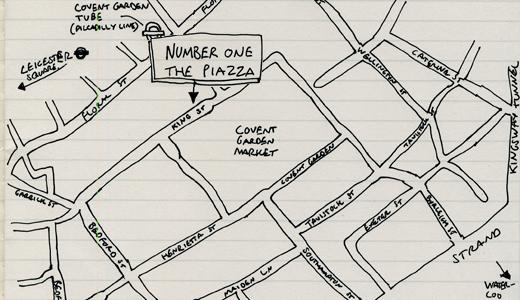 COVENT GARDEN
TUBE
(PICCADILLY LINE)
FLO
LEICESTER
SQUARE
NUMBER ONE
THE PIAZZA
WELLINGTON ST
CATERINE ST
KINGSWAY TUNNEL
FLORAL ST
KING ST
COVENT
GARDEN
MARKET
TAVISTOCK
COVENT GARDEN
GARRICK ST
BEDFORD ST
HENRIETTA ST
TAVISTOCK ST
EXETER ST
BURLEIGH ST
SOUTHAMPTON ST
MAIDEN LN
STRAND
WATER-
LOO